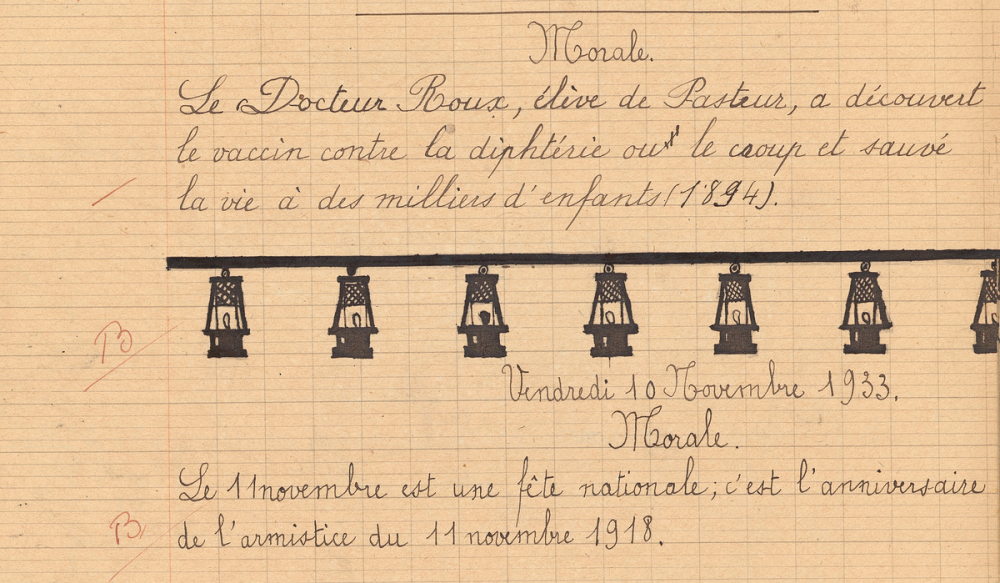 Morale.
Le Docteur Roux, élève de Pasteur, a découvert
le vaccin contre la diphtérie ou le croup et sauvé
la vie à des milliers d'enfants (1894).
B
Vendredi 10 Novembre 1933.
Morale.
Le 11 novembre est une fête nationale; c'est l'anniversaire
B
de l'armistice du 11 novembre 1918.